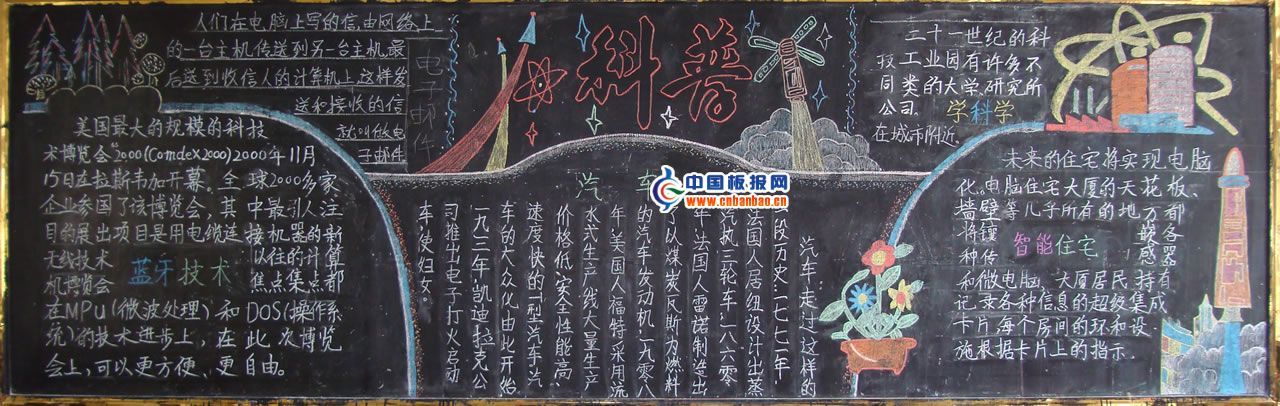 科普
人们在电脑上写的信,由网络上
的一台主机传送到另一台主机,最
后送到收信人的计算机上,这样发
送和接收的信
就叫做电
子邮件
电子邮件
美国最大的规模的科技
术博览会"2000(Comdex2000)2000年11月
15日在拉斯韦加开幕。全球2000多家
企业参国了该博览会,其中最引人注
目的展出项目是用电缆连接机器的新
无线技术
蓝牙技术
以往的计算
机博览会
焦点集点都
在MPU(微波处理)和DOS(操作系
统)的技术进步上,在此次博览
会上,可以更方便、更自由。
汽车
汽车走过这样的
一段历史:一七七一年
法国人居纽设计出蒸
汽机三轮车,一八六零
年,法国人雷诺制造出
了以煤炭瓦斯为燃料
的汽车发动机,一九零八
年,美国人福特采用流
水式生产线大量生产
价格低、安全性能高、
速度快的T型汽车,汽
车的大众化由此开始
一九三二年,凯迪拉克公
司推出电子打火启动
车,使妇女。
中国板报网
www.cnbanbao.cn
二十一世纪的科
技工业园有许多不
同类的大学、研究所
公司。
学科学
在城市附近。
未来的住宅将实现电脑
化。电脑住宅大厦的天花板、
墙壁等几乎所有的地方都
将镶
智能住宅
嵌各
种传
感器
和微电脑,大厦居民,持有
记录各种信息的超级集成
卡片,每个房间的环和设
施根据卡片上的指示。